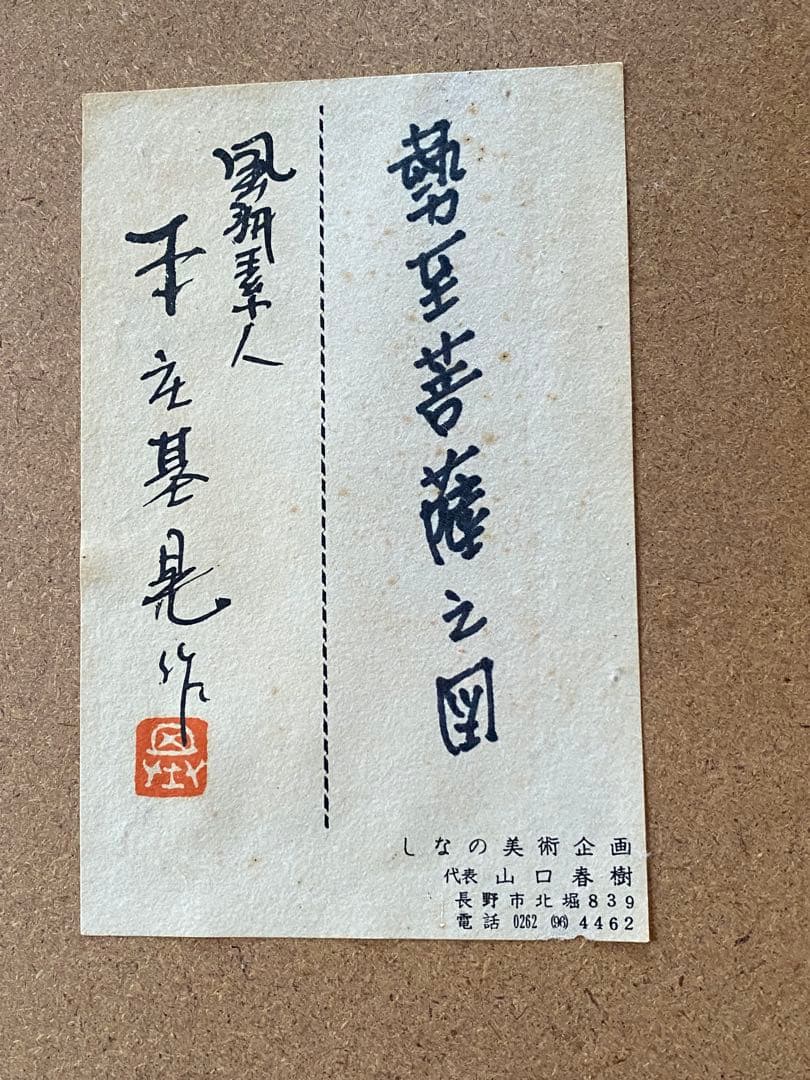 勢至菩薩之図
風翔素人
本庄基晃作
しなの美術企画
代表 山口春樹
長野市北堀839
電話 0262 (96) 4462